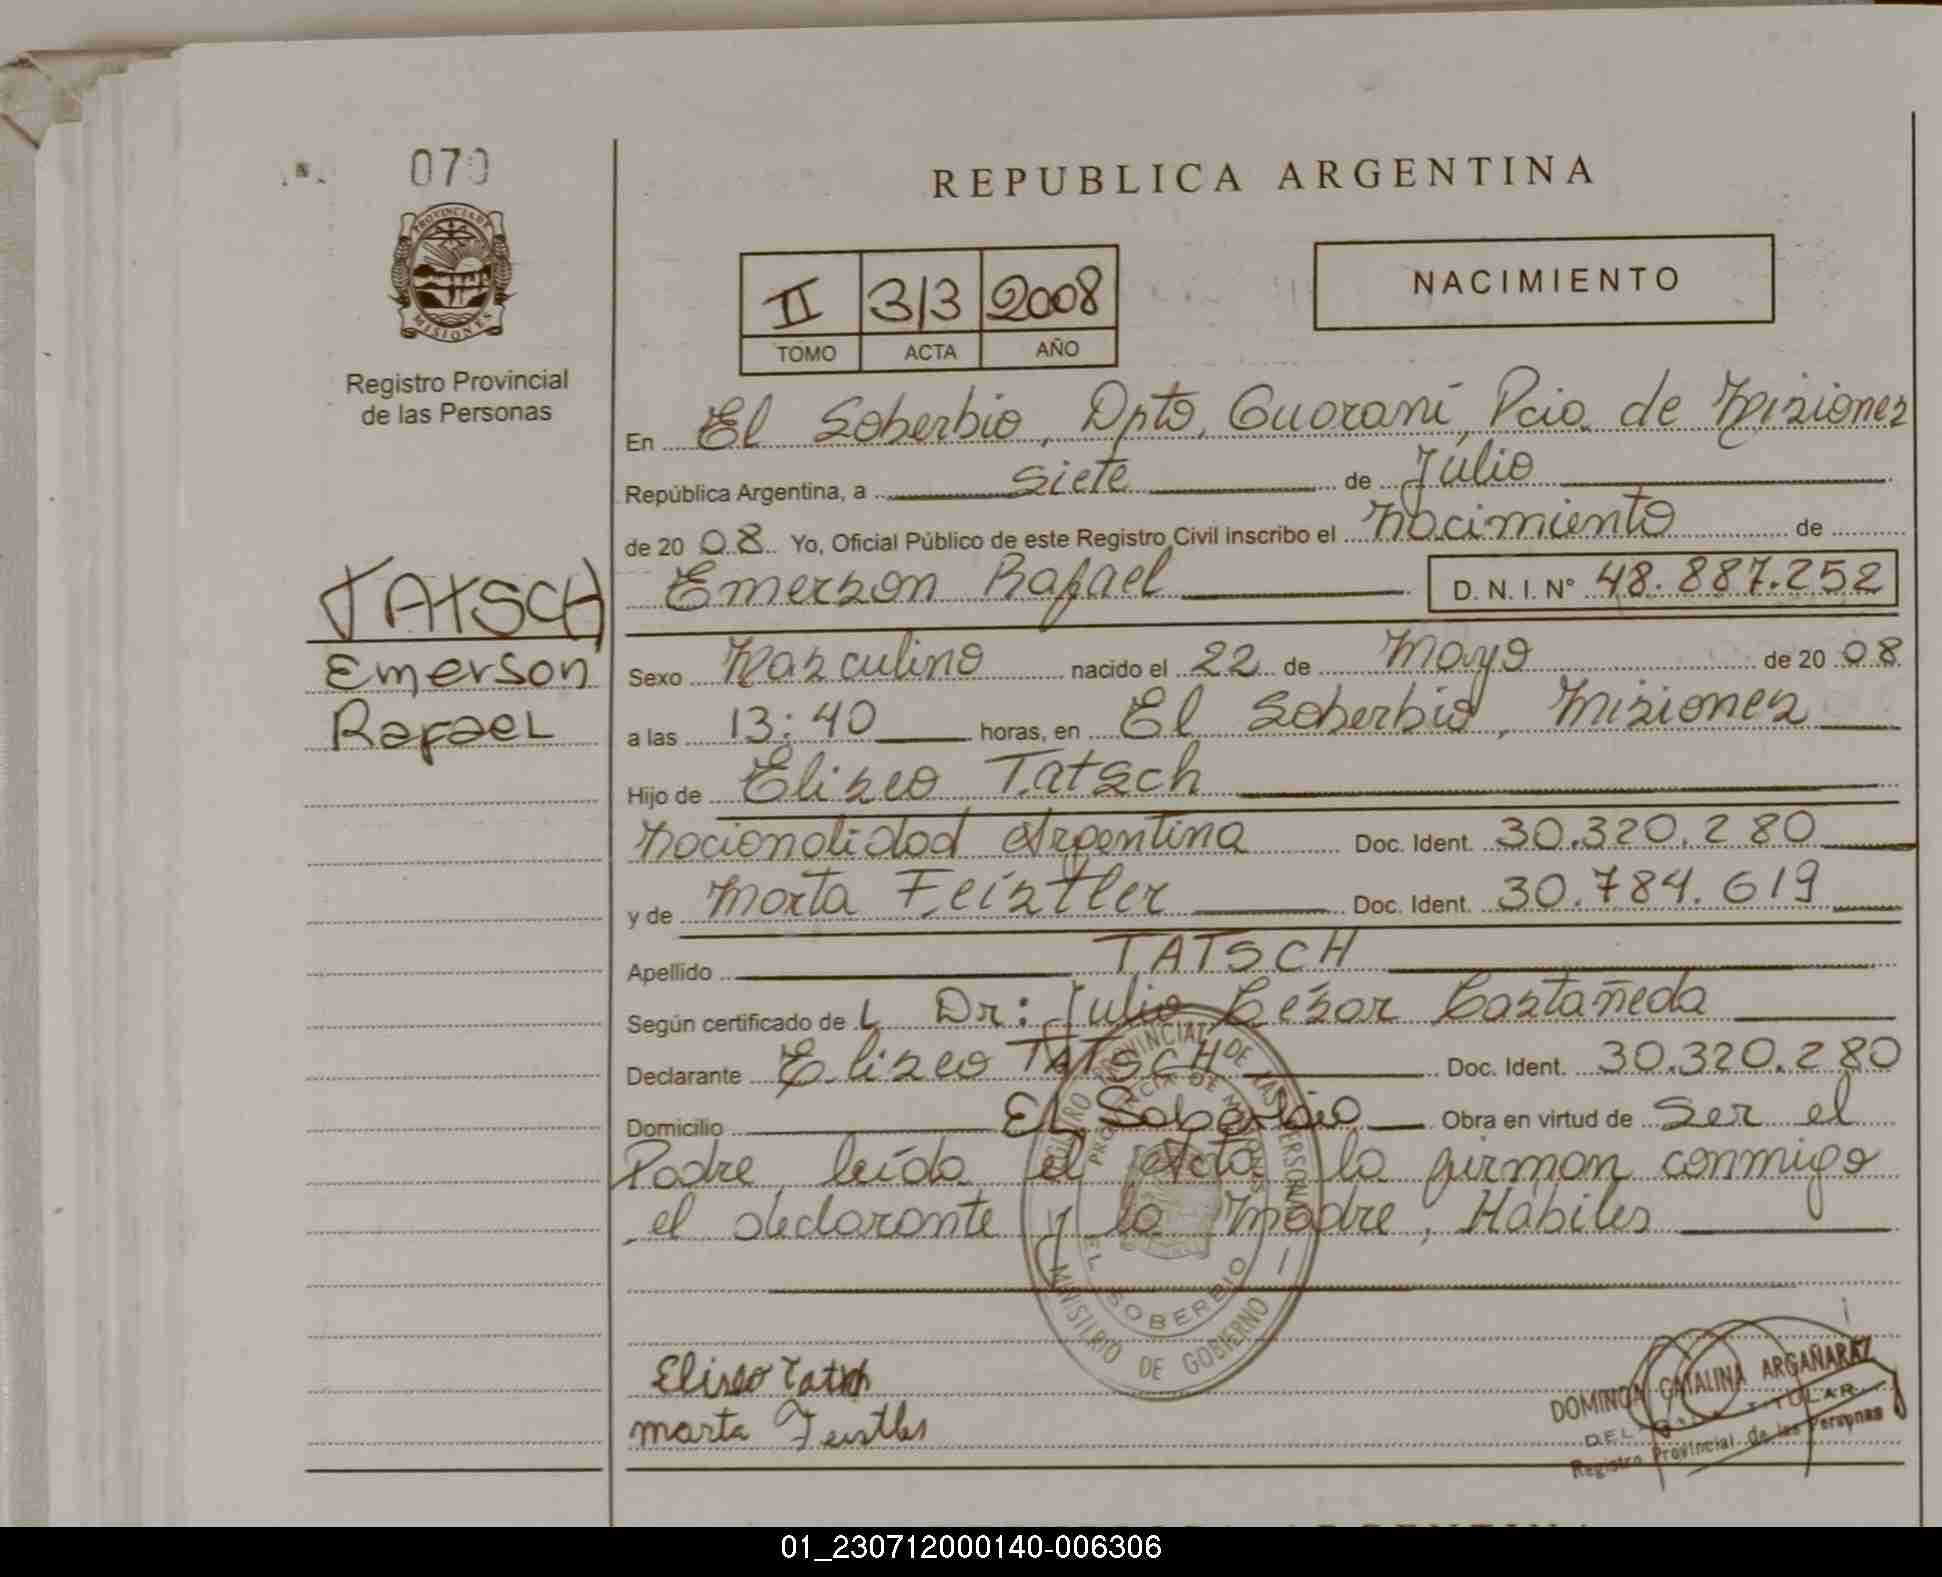 070
PROVINCIA DE
MISIONES
Registro Provincial
de las Personas
TATSCH
Emerson
Rafael
REPUBLICA ARGENTINA
II 313 2008
TOMO ACTA AÑO
NACIMIENTO
En El Soberbio, Dpto, Guaraní, Pcia de Misiones
República Argentina, a siete de Julio
de 20 08 Yo, Oficial Público de este Registro Civil inscribo el Nacimiento de
Emerson Rafael D. N. I. N° 48.887.252
Sexo Masculino nacido el 22 de Mayo de 20 08
a las 13:40 horas, en El Soberbio, Misiones
Hijo de Eliseo Tatsch
Nacionalidad Argentina Doc. Ident. 30.320.280
y de Marta Feistler Doc. Ident. 30.784.619
Apellido TATSCH
Según certificado de L Dr: Julio César Castañeda
Declarante Eliseo TATSCH Doc. Ident. 30.320.280
Domicilio EL Soberbio Obra en virtud de Ser el
Padre, leída el Acta la firman conmigo
el declarante y la Madre, Hábiles
REGISTRO PROVINCIAL DE LAS PERSONAS
PROVINCIA DE MISIONES
EL SOBERBIO
MINISTERIO DE GOBIERNO
Eliseo Tatsch
marta Feistler
DOMINGA CATALINA ARGAÑARAZ
TITULAR
Registro Provincial de las Personas
01_230712000140-006306